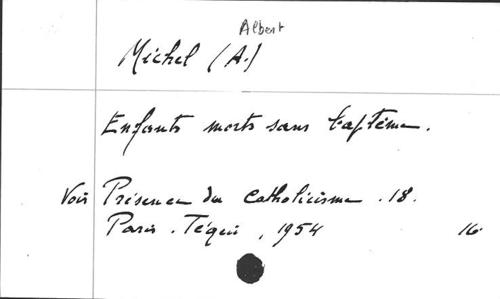 Albert
Michel (A.)
Enfants morts sans baptême.
Voir Présence du Catholicisme. 18.
Paris. Téqui, 1954 16.